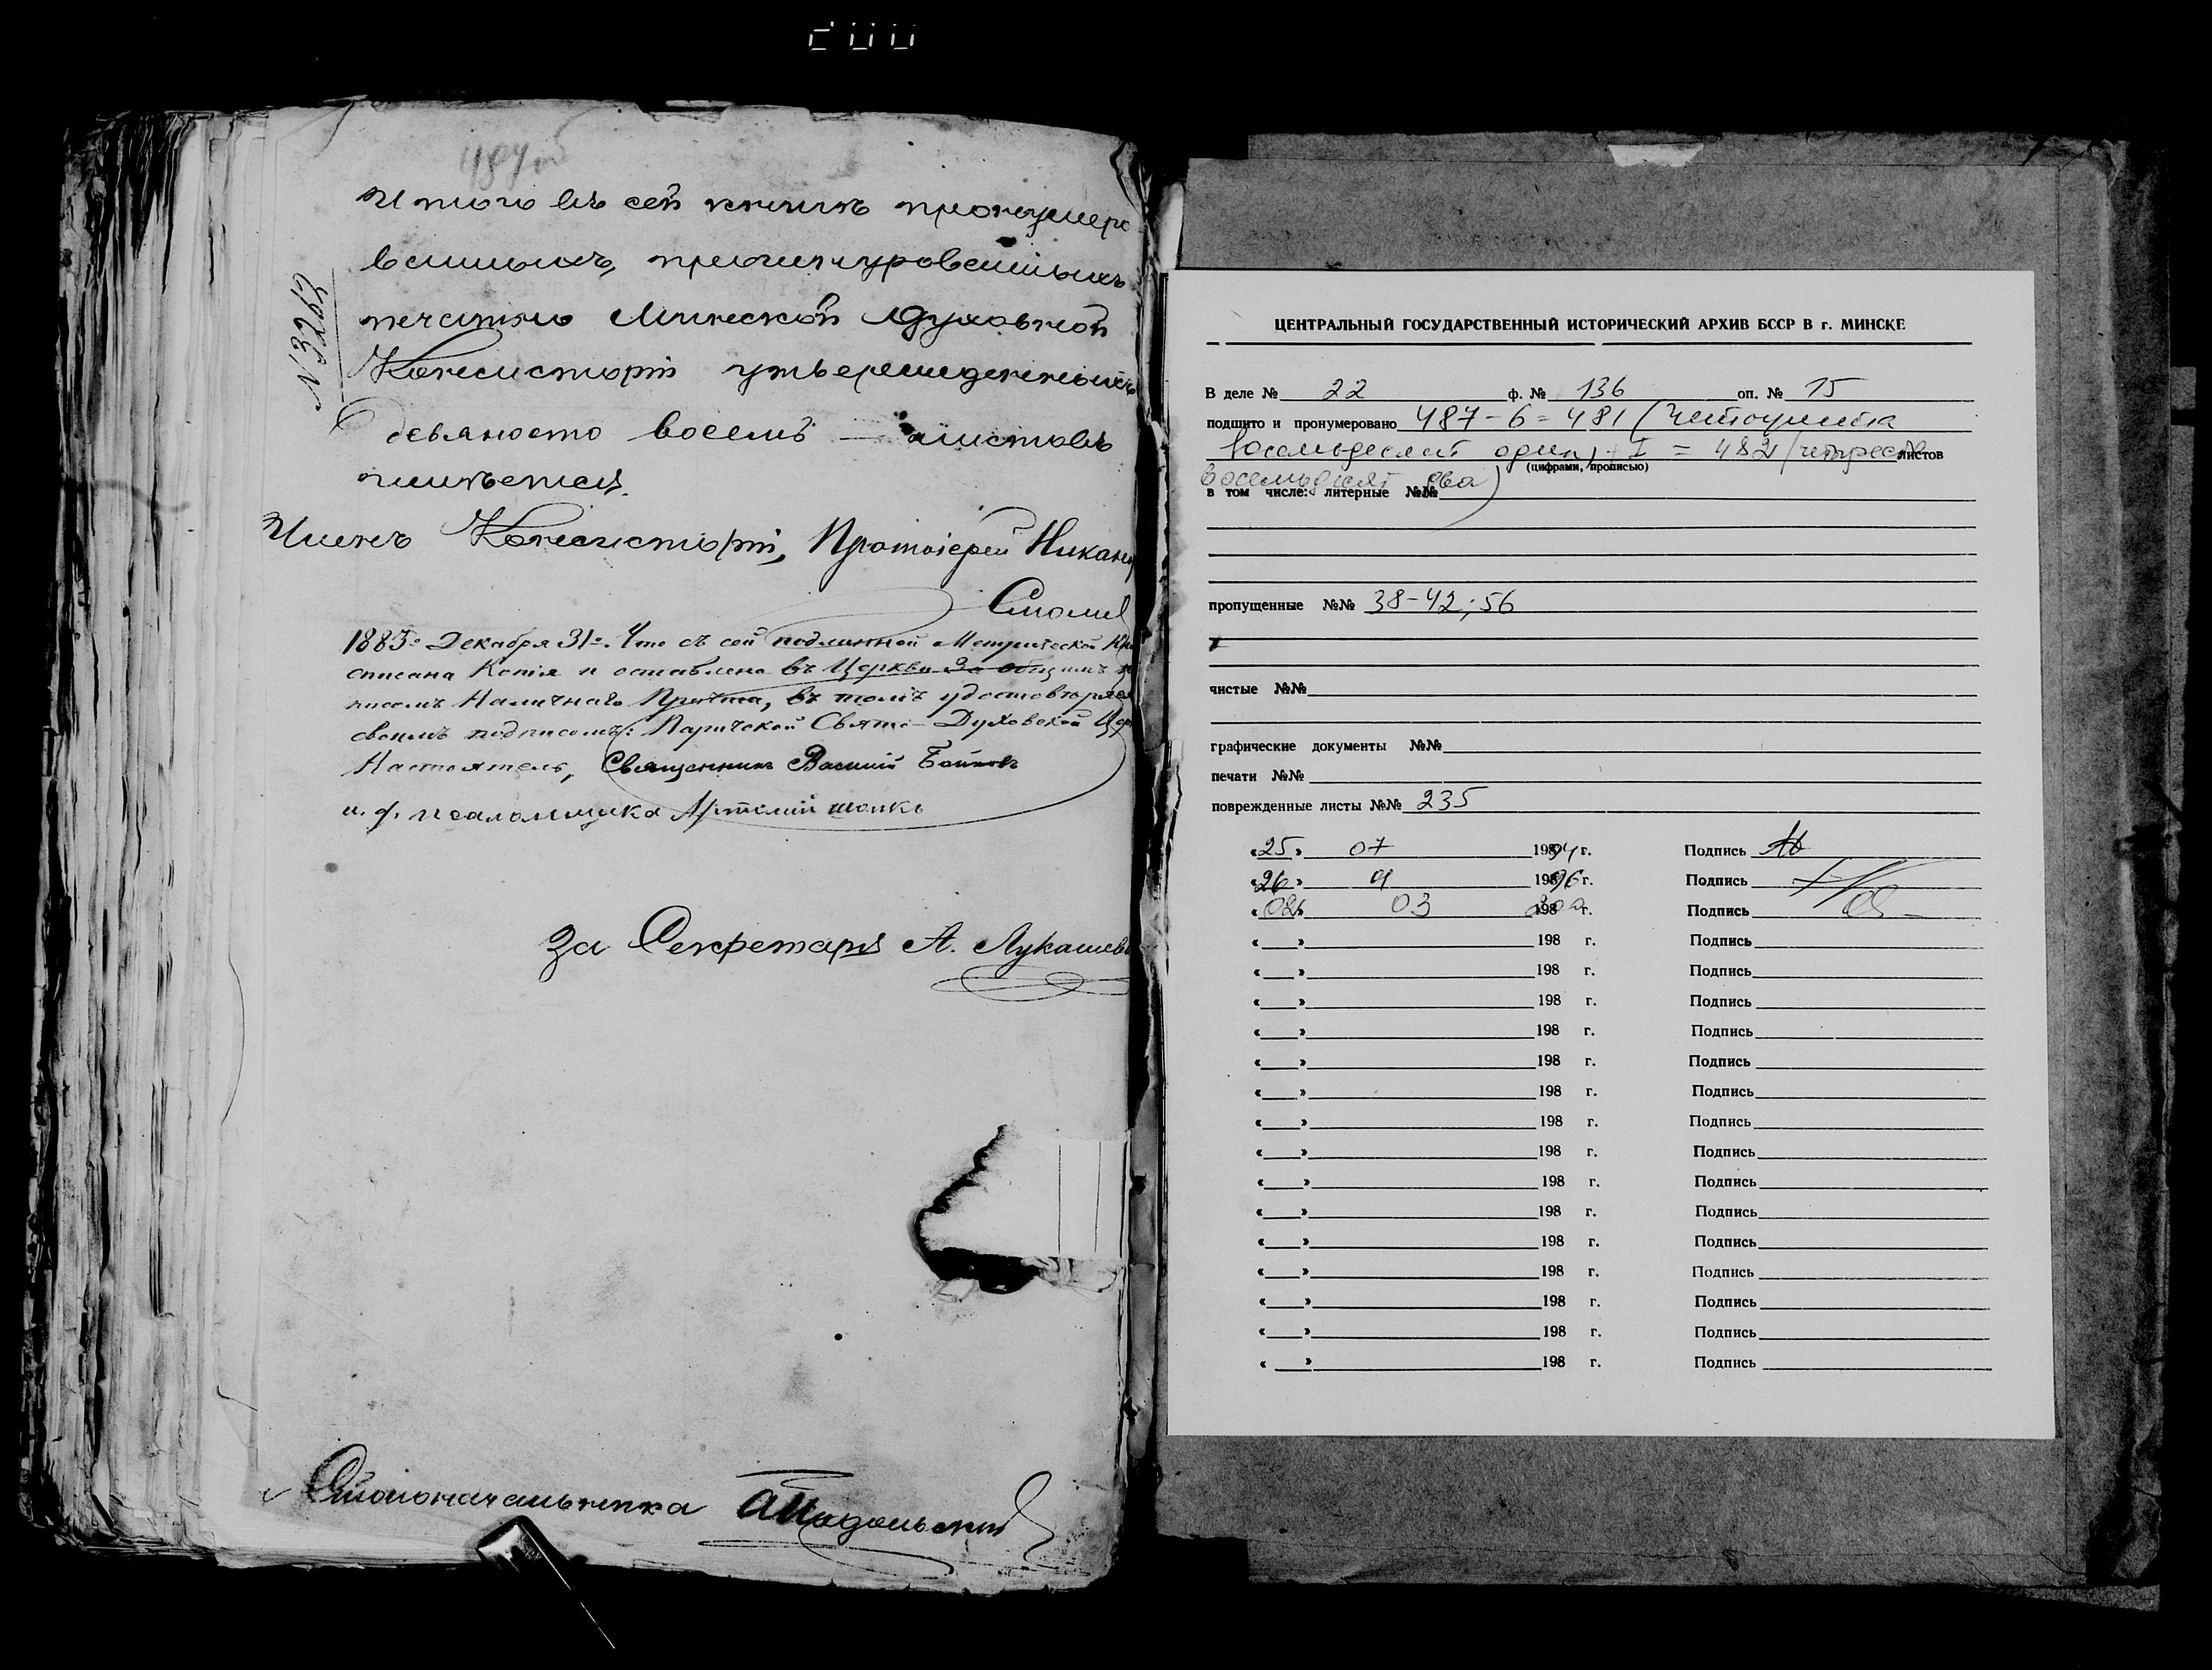 487 об
Итого въ сей книгѣ пронумеро
ванныхъ, прошнурованныхъ
печатью Минской Духовной
Консисторіи утвержденныхъ
девяносто восемь — листовъ
имѣется.
№ 3262
Членъ Консисторіи, Протоіерей Никанд
Смолич
1883го Декабря 31го. Что съ сей подлинной Метрической Кни
списана Копія и оставлена въ Церкви За общимъ по
писомъ Наличнаго Причта, въ томъ удостовѣряемъ
своимъ подписомъ: Паричской Свято-Духовской Цер
Настоятель, Священникъ Василій Бойковъ
и. д. псаломщика Артемій
За Секретаря А. Лукашеви
Столоначальника А Подольскій
ЦЕНТРАЛЬНЫЙ ГОСУДАРСТВЕННЫЙ ИСТОРИЧЕСКИЙ АРХИВ БССР В г. МИНСКЕ
В деле № 22 ф. № 136 оп. № 15
подшито и пронумеровано 487-6=481 (четыреста
восемьдесят один) + I = 482 (четыреста листов
(цифрами, прописью)
восемьдесят два)
в том числе: литерные №№
пропущенные №№ 38-42; 56
чистые №№
графические документы №№
печати №№
поврежденные листы №№ 235
«25» 07 1994 г. Подпись
«26» 9 1996 г. Подпись
«02» 03 200 г. Подпись
« » 198 г. Подпись
« » 198 г. Подпись
« » 198 г. Подпись
« » 198 г. Подпись
« » 198 г. Подпись
« » 198 г. Подпись
« » 198 г. Подпись
« » 198 г. Подпись
« » 198 г. Подпись
« » 198 г. Подпись
« » 198 г. Подпись
« » 198 г. Подпись
« » 198 г. Подпись
« » 198 г. Подпись
« » 198 г. Подпись